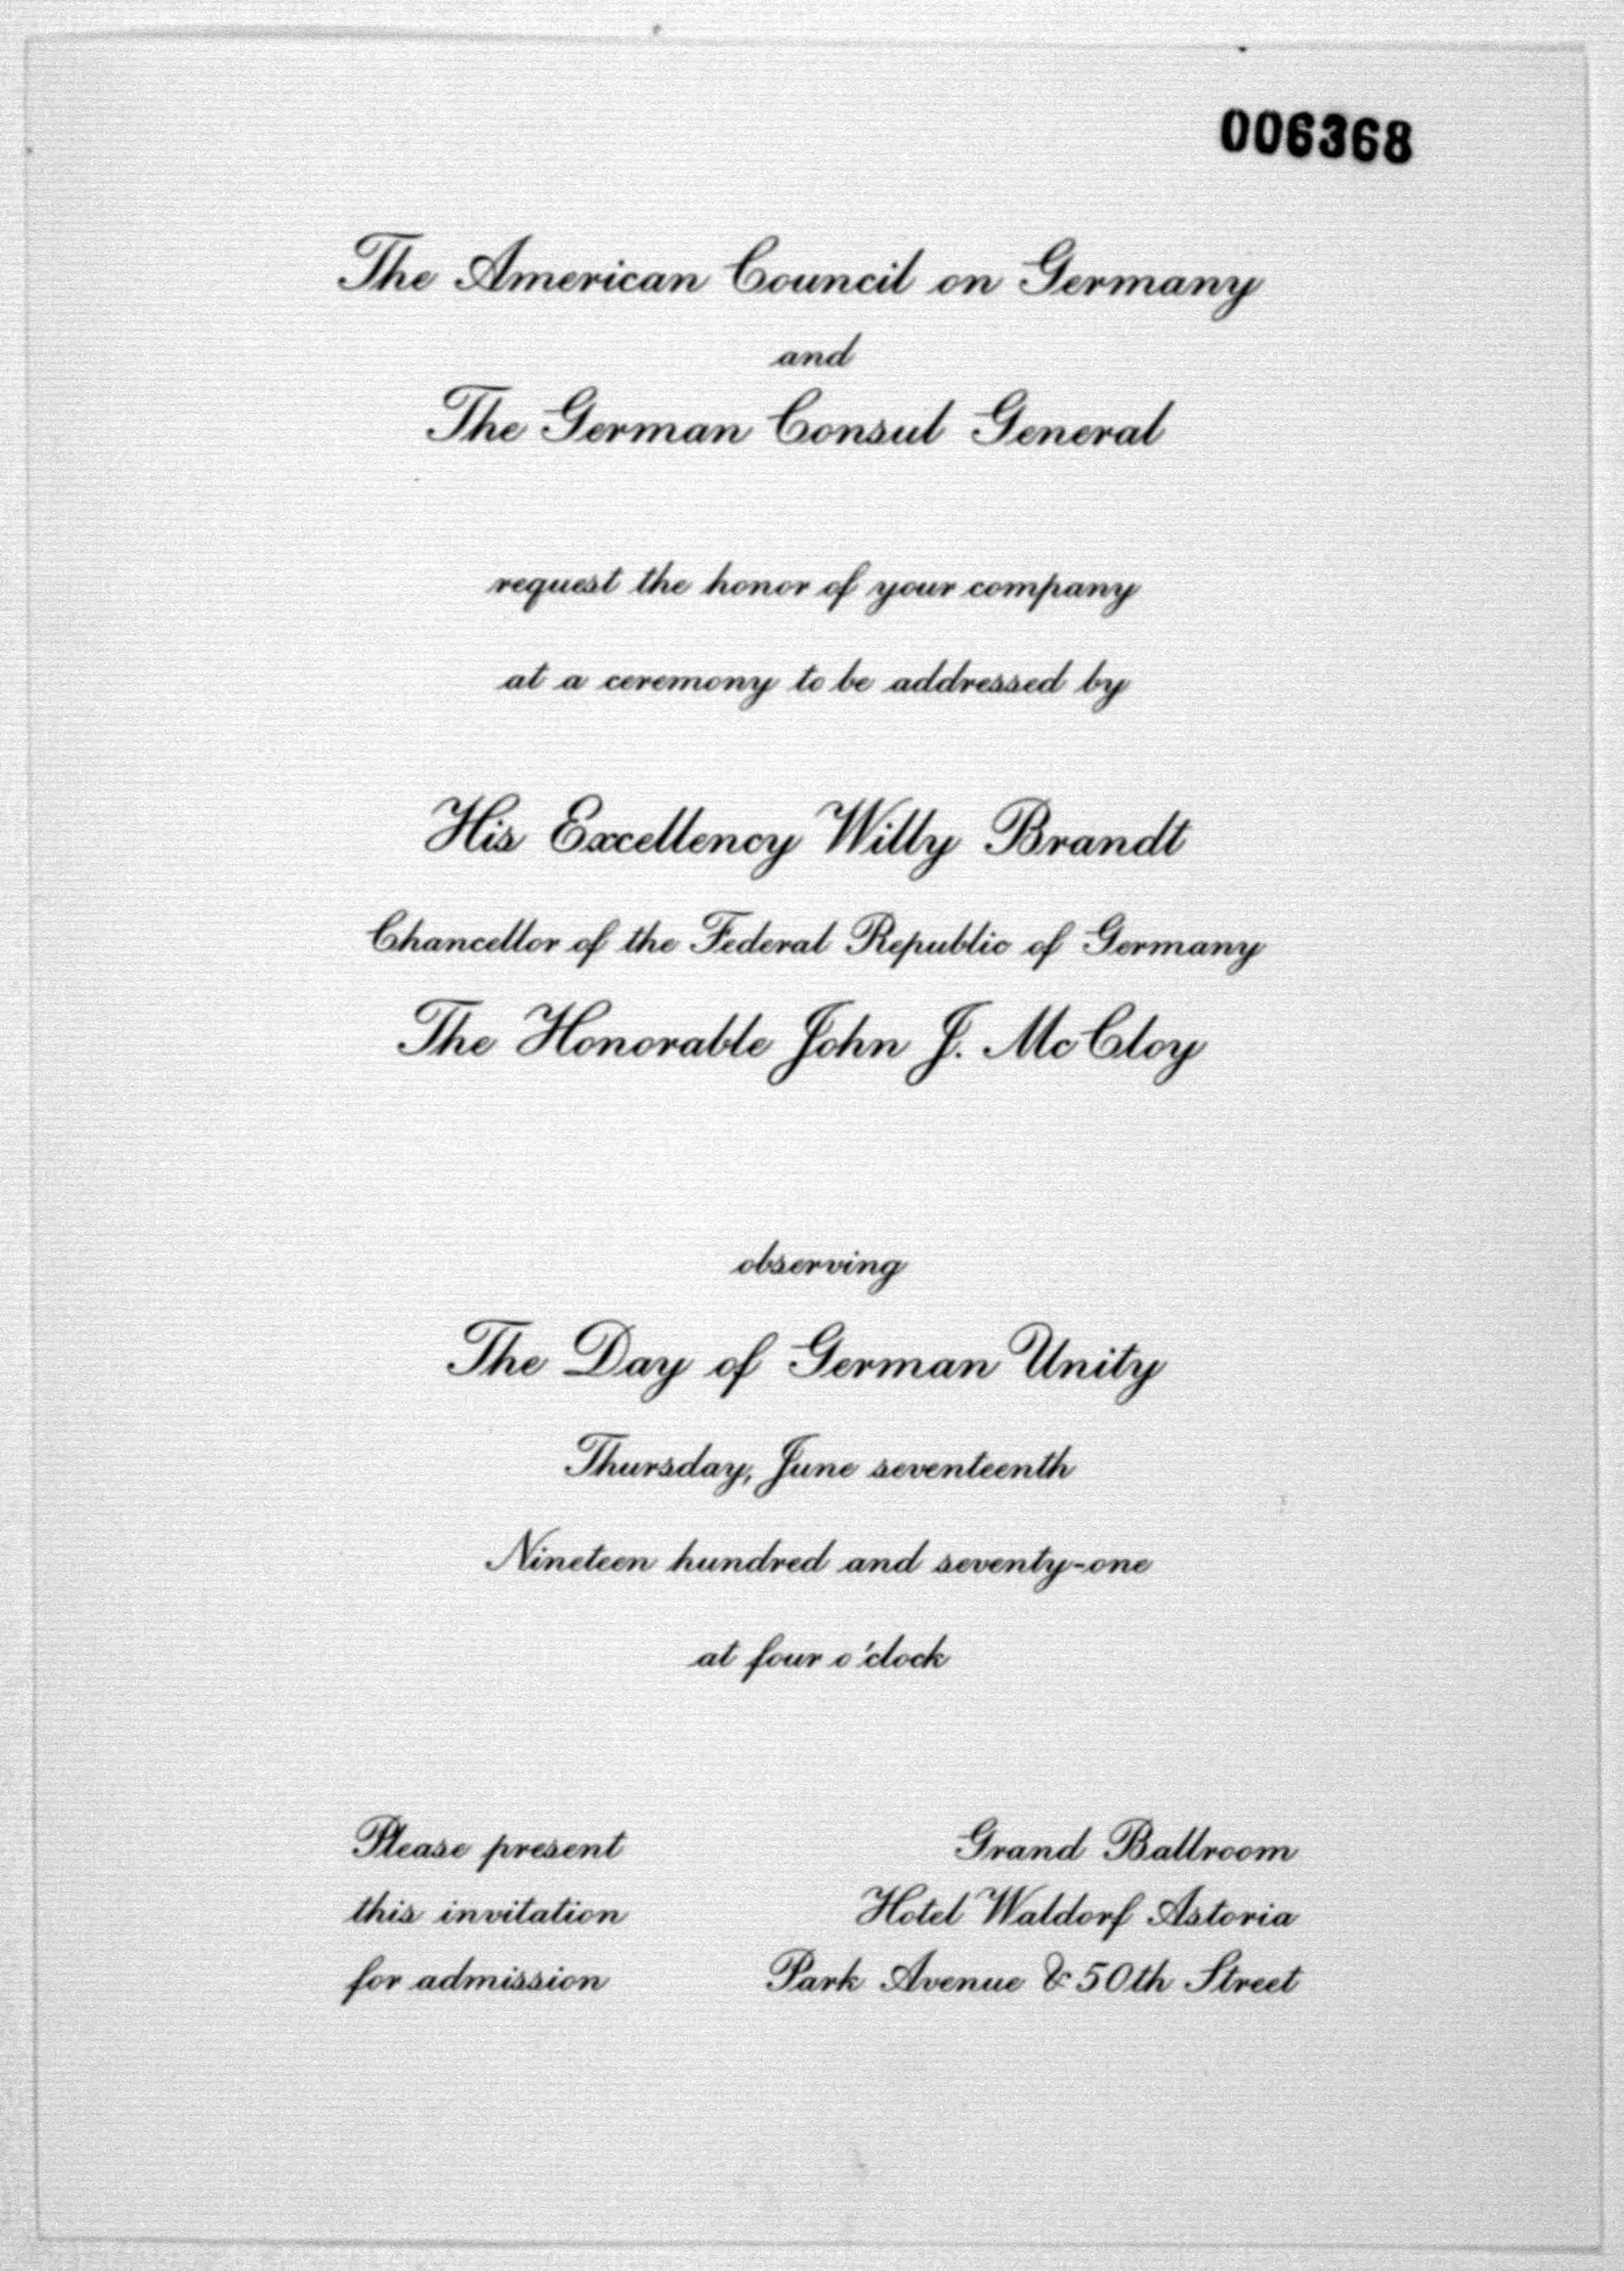 006368
The American Council on Germany
and
The German Consul General
request the honor of your company
at a ceremony to be addressed by
His Excellency Willy Brandt
Chancellor of the Federal Republic of Germany
The Honorable John J. McCloy
observing
The Day of German Unity
Thursday, June seventeenth
Nineteen hundred and seventy-one
at four o'clock
Please present
this invitation
for admission
Grand Ballroom
Hotel Waldorf Astoria
Park Avenue & 50th Street